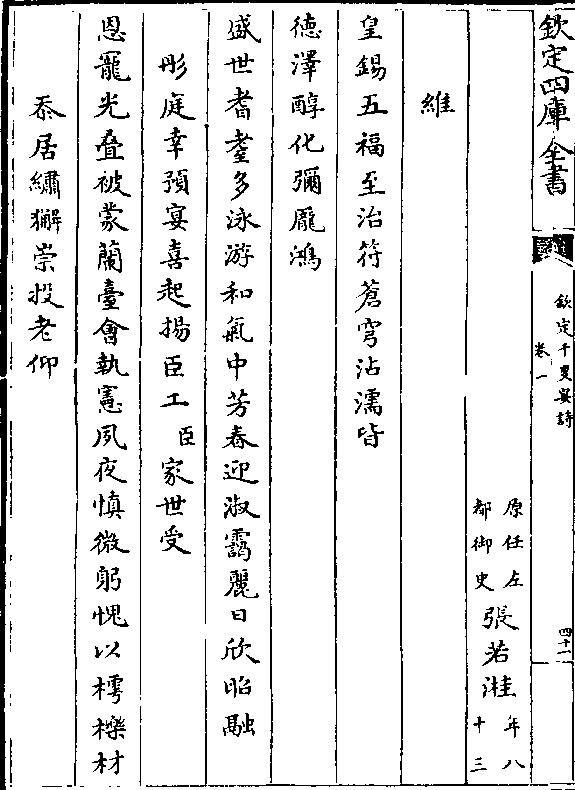 欽定四庫全書
欽定千叟宴詩
卷一
四十一
原任左
都御史張若溎年八
十三
維
皇錫五福至治符蒼穹沾濡皆
德澤醇化彌龐鴻
盛世耆耋多泳游和氣中芳春迎淑靄麗日欣昭融
彤庭幸預宴喜起揚臣工臣家世受
恩寵光疊被蒙蘭臺會執憲夙夜慎微躬愧以樗櫟材
忝居繡獬崇投老仰